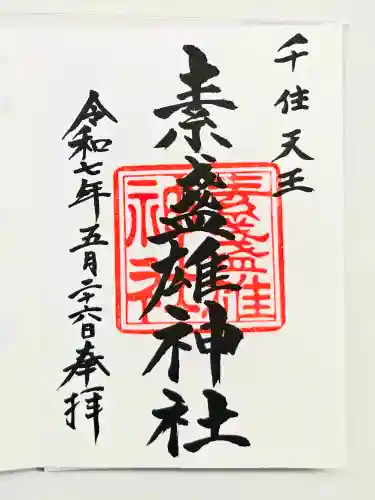 千住天王
素盞雄神社
令和七年五月二十六日奉拝
素盞雄神社